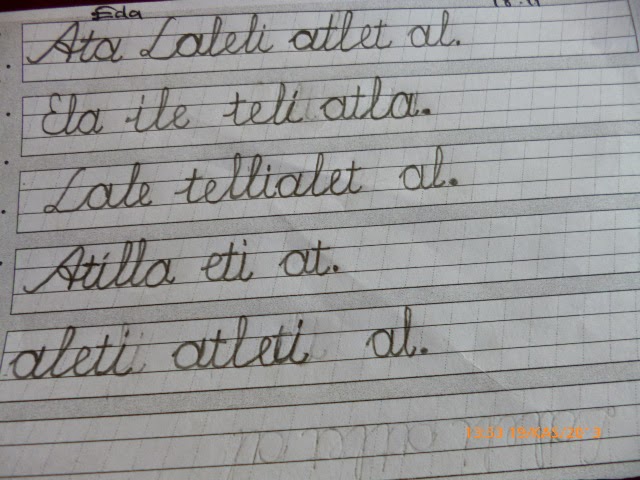 Eda
Ata Laleli atlet al.
Ela ile teli atla.
Lale tellialet al.
Atilla eti at.
aleti atleti al.